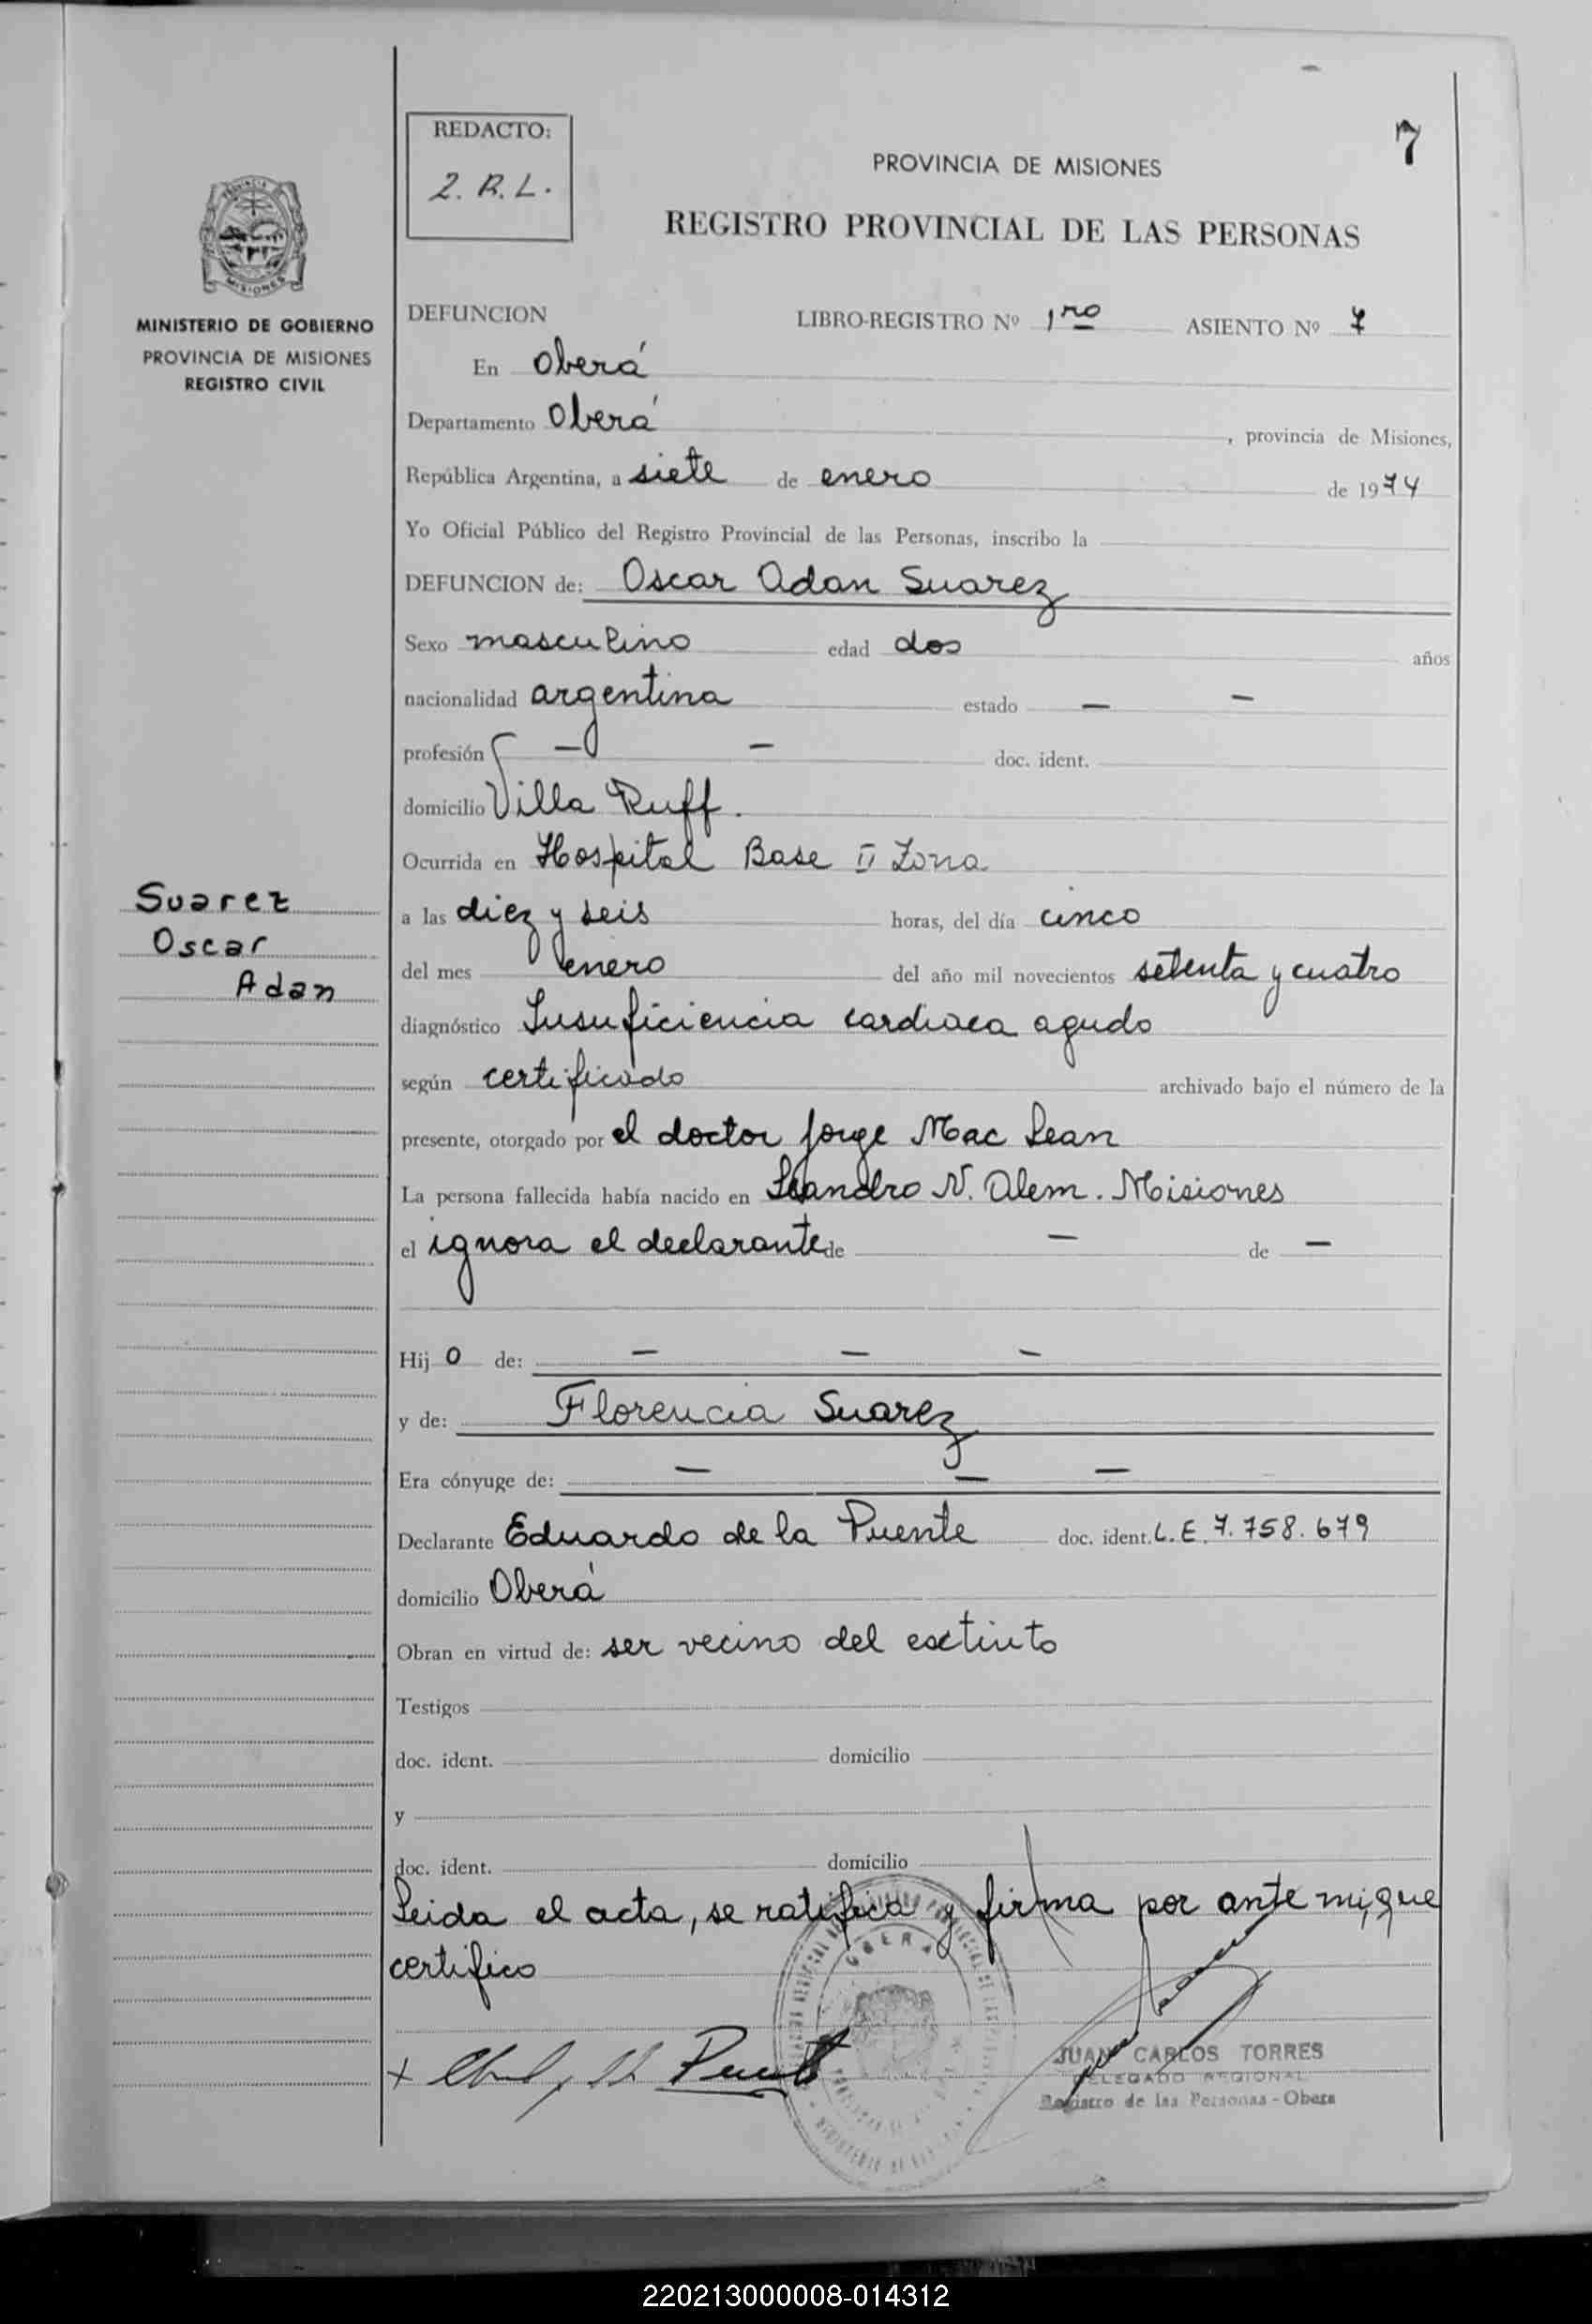 7
REDACTO:
Z. R. L.
PROVINCIA DE MISIONES
REGISTRO PROVINCIAL DE LAS PERSONAS
MISIONES
MINISTERIO DE GOBIERNO
PROVINCIA DE MISIONES
REGISTRO CIVIL
DEFUNCION LIBRO-REGISTRO Nº 1ro ASIENTO Nº 7
En Oberá
Departamento Oberá, provincia de Misiones,
República Argentina, a siete de enero de 1974
Yo Oficial Público del Registro Provincial de las Personas, inscribo la
DEFUNCION de: Oscar Adan Suarez
Sexo masculino edad dos años
nacionalidad argentina estado — —
profesión — — doc. ident.
domicilio Villa Ruff.
Ocurrida en Hospital Base II Zona
a las diez y seis horas, del día cinco
del mes enero del año mil novecientos setenta y cuatro
diagnóstico Insuficiencia cardiaca agudo
según certificado archivado bajo el número de la
presente, otorgado por el doctor Jorge Mac Lean
La persona fallecida había nacido en Leandro N. Alem. Misiones
el ignora el declarante de — de —
Hijo de: — — —
y de: Florencia Suarez
Era cónyuge de: — — —
Declarante Eduardo de la Puente doc. ident. L.E. 7.758.679
domicilio Oberá
Obran en virtud de: ser vecino del extinto
Testigos
doc. ident. domicilio
y
doc. ident. domicilio
Leida el acta, se ratifica y firma por ante mi, que
certifico
Suarez
Oscar
Adan
OBERA
JUAN CARLOS TORRES
DELEGADO REGIONAL
Registro de las Personas - Obera
220213000008-014312